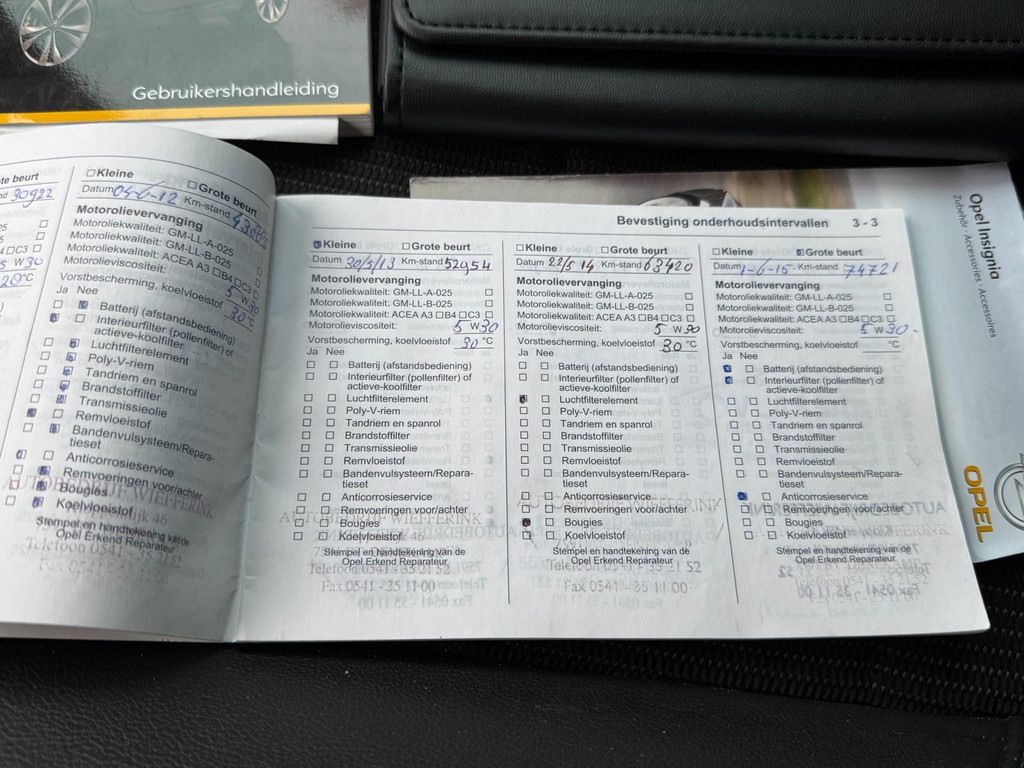 Gebruikershandleiding
Opel Insignia
Zubehör · Accessories · Accessoires
OPEL
te beurt
30922
W30
20°C
☐Kleine ☐Grote beurt
Datum 04-6-12 Km-stand
Motorolievervanging
Motoroliekwaliteit: GM-LL-A-025 ☐
Motoroliekwaliteit: GM-LL-B-025 ☐
Motoroliekwaliteit: ACEA A3 ☐B4 ☐C3 ☐
Motorolieviscositeit: 5 W30
Vorstbescherming, koelvloeistof 30°C
Ja Nee
Batterij (afstandsbediening)
Interieurfilter (pollenfilter) of
actieve-koolfilter
Luchtfilterelement
Poly-V-riem
Tandriem en spanrol
Brandstoffilter
Transmissieolie
Remvloeistof
Bandenvulsysteem/Repara-
tieset
Anticorrosieservice
Remvoeringen voor/achter
Bougies
Koelvloeistof
AUTOBEDRIJF WIEFFERINK
Stempel en handtekening van de
Opel Erkend Reparateur
Telefoon 0541
Bevestiging onderhoudsintervallen 3 - 3
Kleine ☐Grote beurt
Datum 30/5/13 Km-stand 52954
Motorolievervanging
Motoroliekwaliteit: GM-LL-A-025 ☐
Motoroliekwaliteit: GM-LL-B-025 ☐
Motoroliekwaliteit: ACEA A3 ☐B4 ☐C3 ☐
Motorolieviscositeit: 5 W30
Vorstbescherming, koelvloeistof 30 °C
Ja Nee
☐ ☐ Batterij (afstandsbediening)
☐ ☐ Interieurfilter (pollenfilter) of
actieve-koolfilter
☐ ☐ Luchtfilterelement
☐ ☐ Poly-V-riem
☐ ☐ Tandriem en spanrol
☐ ☐ Brandstoffilter
☐ ☐ Transmissieolie
☐ ☐ Remvloeistof
☐ ☐ Bandenvulsysteem/Repara-
tieset
☐ ☐ Anticorrosieservice
☐ ☐ Remvoeringen voor/achter
AUTOBEDRIJF WIEFFERINK
☐ ☐ Bougies
☐ ☐ Koelvloeistof
Stempel en handtekening van de
Opel Erkend Reparateur
Telefoon 0541 - 35 21 52
Fax 0541 - 35 11 00
☐Kleine ☐Grote beurt
Datum 22/5 14 Km-stand 63420
Motorolievervanging
Motoroliekwaliteit: GM-LL-A-025 ☐
Motoroliekwaliteit: GM-LL-B-025 ☐
Motoroliekwaliteit: ACEA A3 ☐B4 ☐C3 ☐
Motorolieviscositeit: 5 W30
Vorstbescherming, koelvloeistof 30 °C
Ja Nee
☐ ☐ Batterij (afstandsbediening)
☐ ☐ Interieurfilter (pollenfilter) of
actieve-koolfilter
☐ Luchtfilterelement
☐ ☐ Poly-V-riem
☐ ☐ Tandriem en spanrol
☐ ☐ Brandstoffilter
☐ ☐ Transmissieolie
☐ ☐ Remvloeistof
☐ ☐ Bandenvulsysteem/Repara-
tieset
☐ ☐ Anticorrosieservice
☐ ☐ Remvoeringen voor/achter
☐ Bougies
☐ ☐ Koelvloeistof
Stempel en handtekening van de
Opel Erkend Reparateur
Fax 0541 - 35 11 00
☐Kleine Grote beurt
Datum 1-6-15 Km-stand 74721
Motorolievervanging
Motoroliekwaliteit: GM-LL-A-025 ☐
Motoroliekwaliteit: GM-LL-B-025 ☐
Motoroliekwaliteit: ACEA A3 ☐B4 ☐C3 ☐
Motorolieviscositeit: 5 W30
Vorstbescherming, koelvloeistof °C
Ja Nee
☐ Batterij (afstandsbediening)
☐ Interieurfilter (pollenfilter) of
actieve-koolfilter
☐ ☐ Luchtfilterelement
☐ ☐ Poly-V-riem
☐ ☐ Tandriem en spanrol
☐ ☐ Brandstoffilter
☐ ☐ Transmissieolie
☐ ☐ Remvloeistof
☐ ☐ Bandenvulsysteem/Repara-
tieset
☐ Anticorrosieservice
☐ ☐ Remvoeringen voor/achter
☐ ☐ Bougies
☐ ☐ Koelvloeistof
Stempel en handtekening van de
Opel Erkend Reparateur